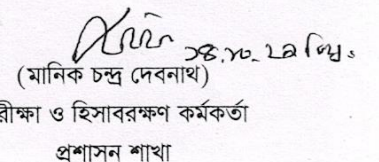 (মানিক চন্দ্র দেবনাথ)
রীক্ষা ও হিসাবরক্ষণ কর্মকর্তা
প্রশাসন শাখা